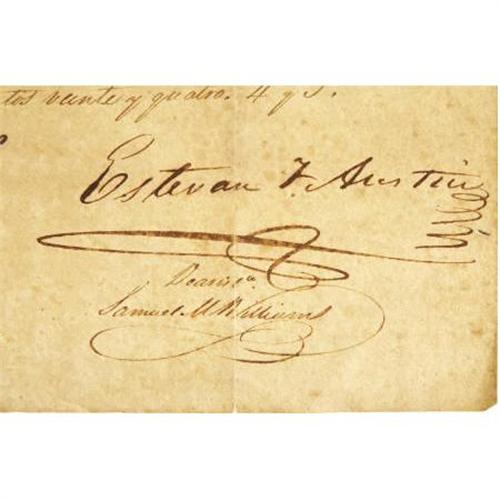 tos veinte y quatro. 4 y 5.
Estevan F. Austin
Samuel M Williams